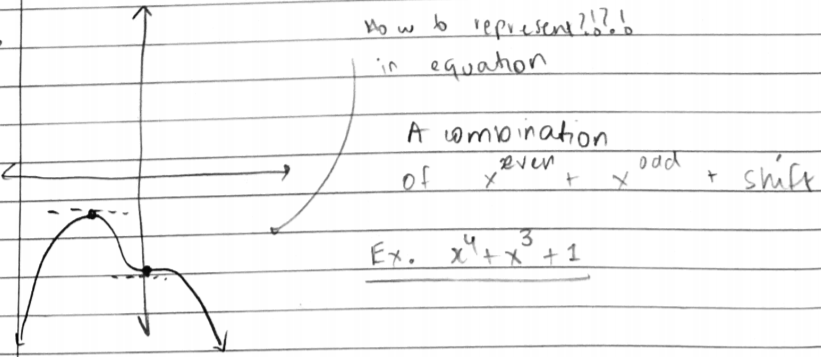 How to represent?!?!
in equation
A combination
of x^even + x^odd + shift
Ex. x^4 + x^3 + 1